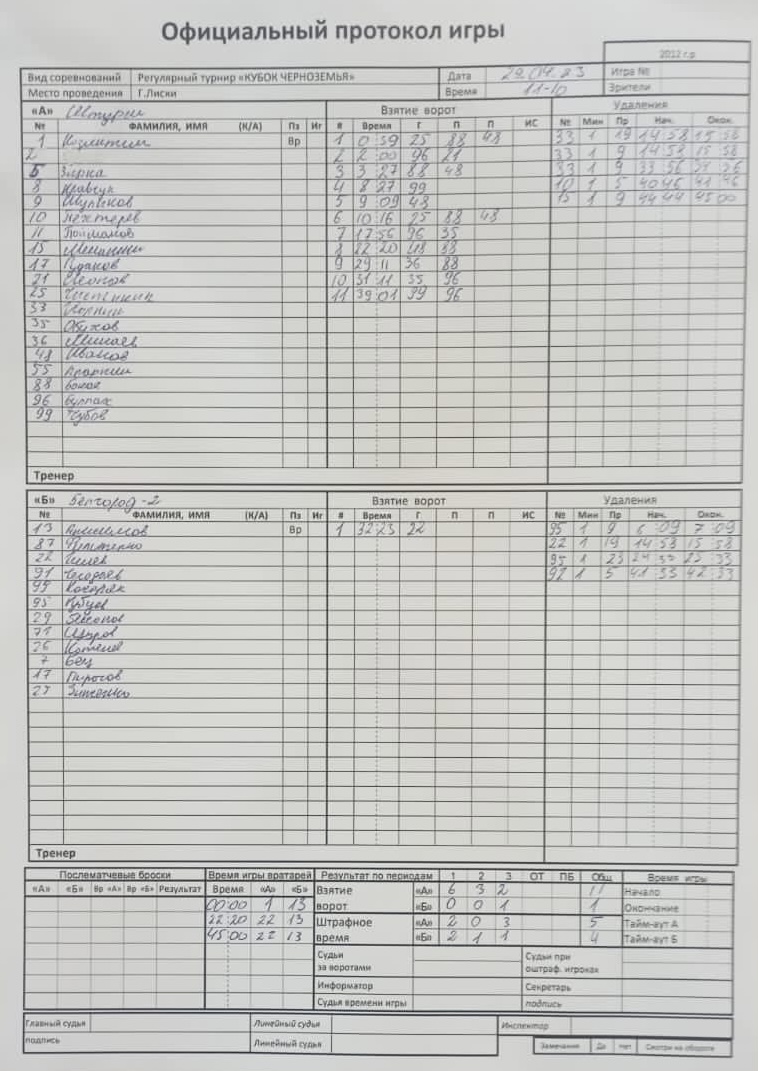 Официальный протокол игры
2012 г.р
Вид соревнований Регулярный турнир «КУБОК ЧЕРНОЗЕМЬЯ» Дата 29.04.23 Игра №
Место проведения Г.Лиски Время 11-10 Зрители
«А» Взятие ворот Удаления
№ ФАМИЛИЯ, ИМЯ (К/А) Пз Иг # Время Г П П ИС № Мин Пр Нач. Окон.
1 Вр 1 0 59 25 88 48 33 1 19 14 58 15 58
2 2 2 00 96 21 33 1 9 14 58 15 58
5 Зырка 3 3 27 88 48 33 1 9 33 56 34 56
8 Кравчук 4 8 27 99 10 1 5 40 46 41 46
9 Шуликов 5 9 09 48 15 1 9 44 44 45 00
10 Нехтерев 6 10 16 25 88 48
11 7 17 56 96 35
15 8 22 20 48 88
17 Пудаков 9 29 11 36 88
21 Леонов 10 31 11 35 96
25 11 39 01 99 96
33
35 Обухов
36 Минаев
48 Иванов
55
88
96
99 Чубов
Тренер
«Б» Белгород-2 Взятие ворот Удаления
№ ФАМИЛИЯ, ИМЯ (К/А) Пз Иг # Время Г П П ИС № Мин Пр Нач. Окон.
13 Анисимов Вр 1 32 23 22 95 1 9 6 09 7 09
87 22 1 19 14 58 15 58
22 95 1 23 24 33 25 33
91 92 1 5 41 33 42 33
99
95
29
71
26
7 Бец
17 Пирогов
27 Зинченко
Тренер
Послематчевые броски Время игры вратарей Результат по периодам 1 2 3 ОТ ПБ Общ Время игры
«А» «Б» Вр «А» Вр «Б» Результат Время «А» «Б» Взятие «А» 6 3 2 11 Начало
00:00 1 13 ворот «Б» 0 0 1 1 Окончание
22:20 22 13 Штрафное «А» 2 0 3 5 Тайм-аут А
45:00 22 13 время «Б» 2 1 1 4 Тайм-аут Б
Судьи за воротами Судьи при оштраф. игроках
Информатор Секретарь
Судья времени игры подпись
Главный судья Линейный судья Инспектор
подпись Линейный судья Замечания Да Нет Смотри на обороте